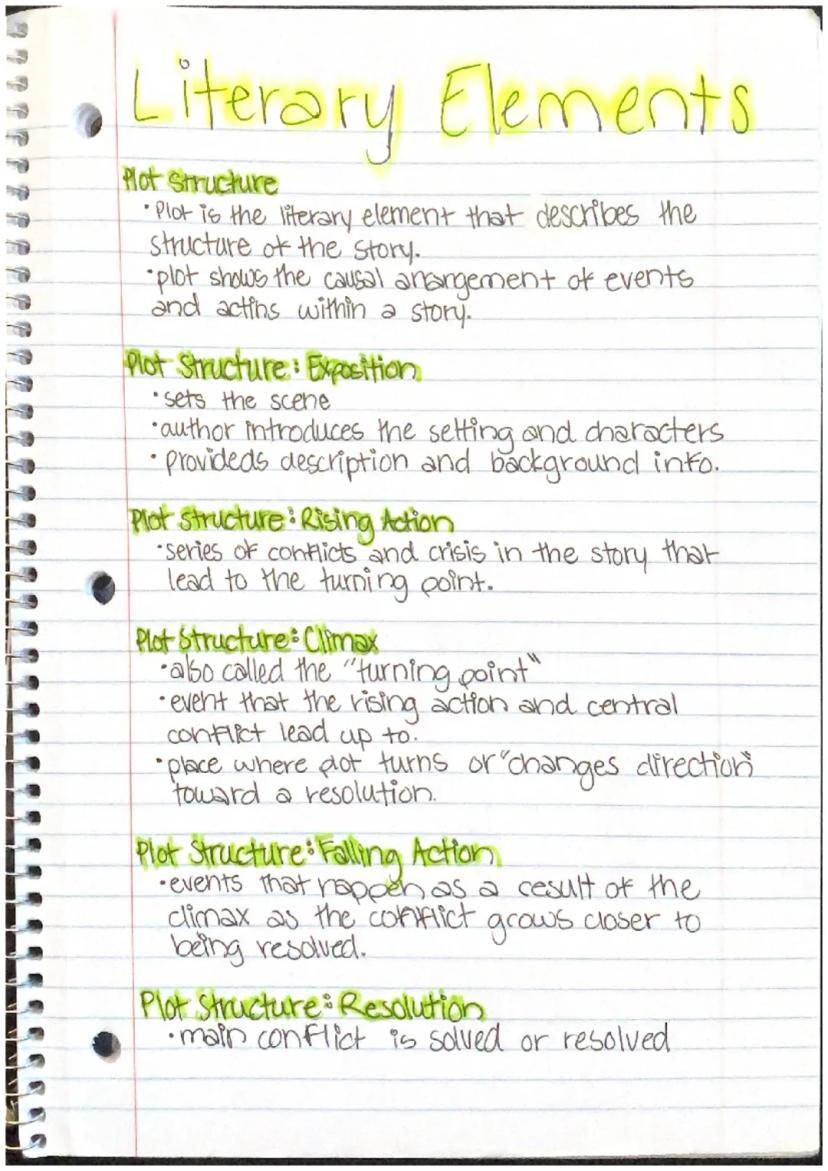 Literary Elements
Plot Structure
• Plot is the literary element that describes the
structure of the story.
• plot shows the causal arrangement of events
and actins within a story.
Plot Structure: Exposition
• sets the scene
• author introduces the setting and characters
• provideds description and background info.
Plot Structure: Rising Action
• series of conflicts and crisis in the story that
lead to the turning point.
Plot Structure: Climax
• also called the "turning point"
• event that the rising action and central
conflict lead up to.
• place where plot turns or "changes direction"
toward a resolution.
Plot Structure: Falling Action
• events that happen as a result of the
climax as the conflict grows closer to
being resolved.
Plot Structure: Resolution
• main conflict is solved or resolved